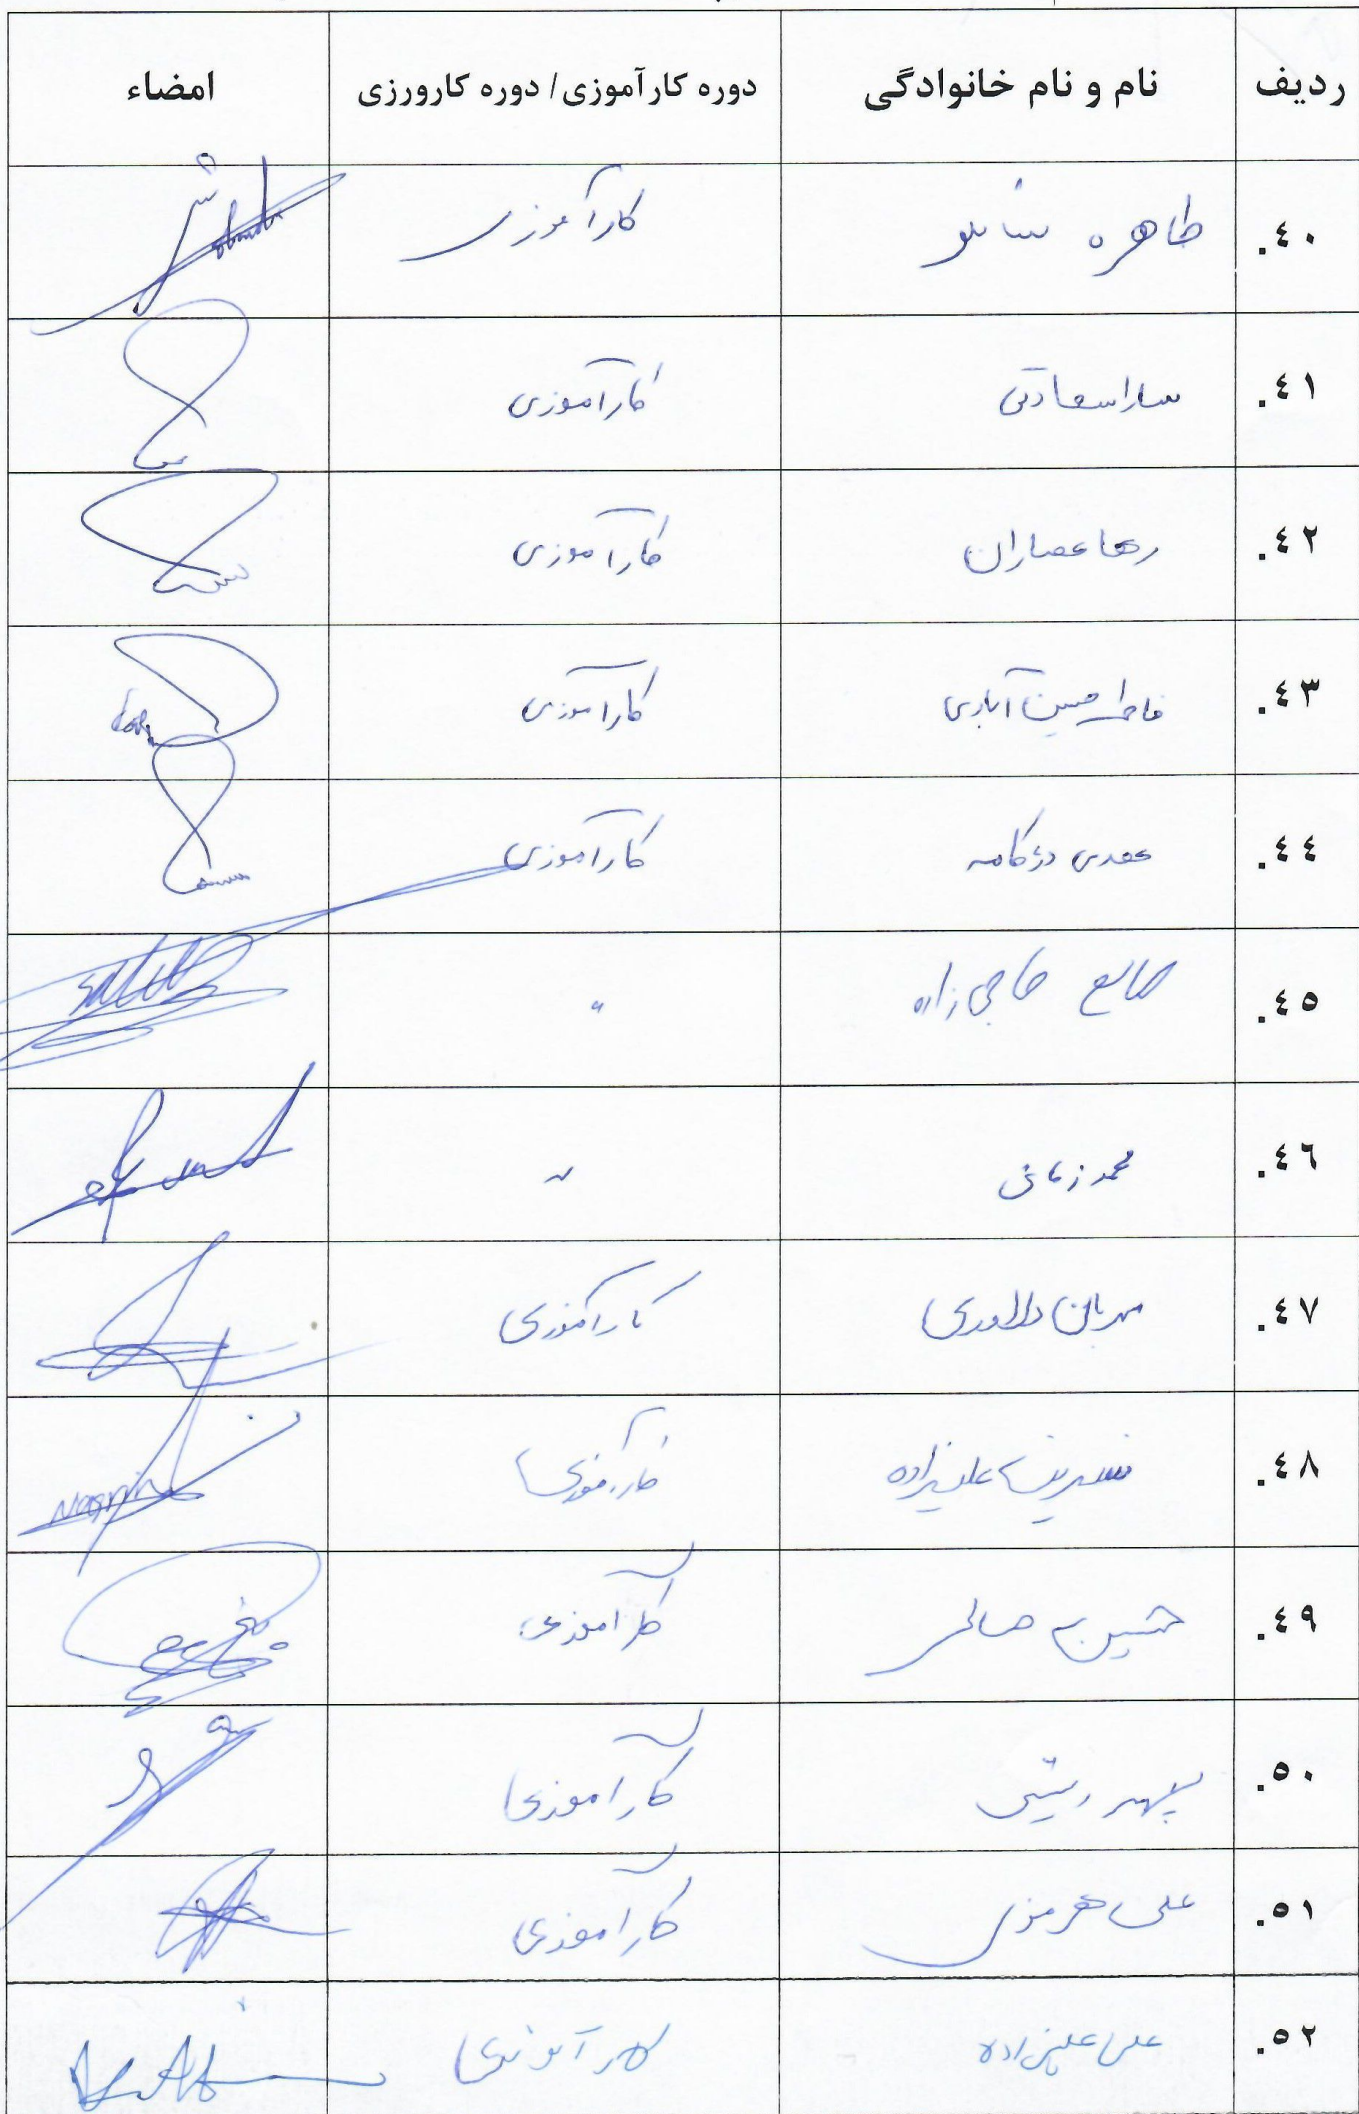 ردیف نام و نام خانوادگی دوره کارآموزی/ دوره کارورزی امضاء
.٤٠ طاهره شاملو کارآموزی
.٤١ سارا سعادتی کارآموزی
.٤٢ رها عصاران کارآموزی
.٤٣ فاطمه حسین آبادی کارآموزی
.٤٤ کارآموزی
.٤٥ صالح حاجی زاده "
.٤٦ محمد زمانی "
.٤٧ مهربان دلاوری کارآموزی
.٤٨ نسرین علیزاده کارآموزی
.٤٩ حسین صالحی کارآموزی
.٥٠ سپهر کارآموزی
.٥١ علی هرمزی کارآموزی
.٥٢ علی علیزاده کارآموزی